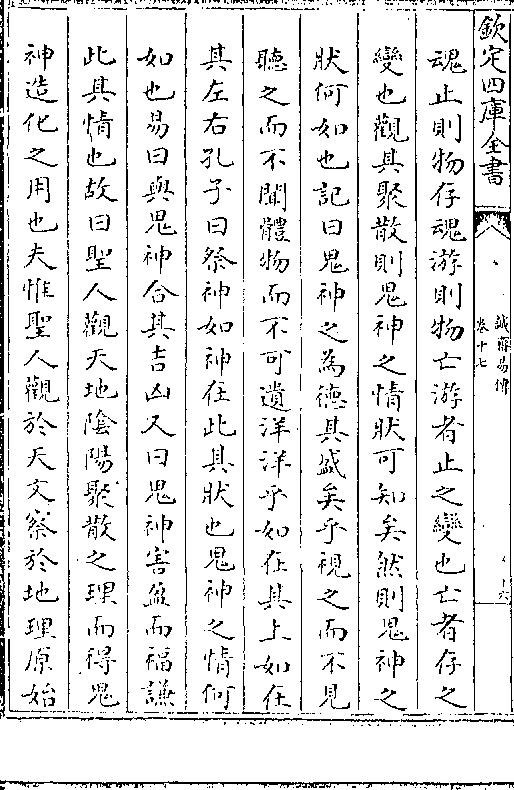 欽定四庫全書
誠齋易傳
卷十七
十六
魂止則物存魂游則物亡游者止之變也亡者存之
變也觀其聚散則鬼神之情狀可知矣然則鬼神之
狀何如也記曰鬼神之為德其盛矣乎視之而不見
聽之而不聞體物而不可遺洋洋乎如在其上如在
其左右孔子曰祭神如神在此其狀也鬼神之情何
如也易曰與鬼神合其吉凶又曰鬼神害盈而福謙
此其情也故曰聖人觀天地陰陽聚散之理而得鬼
神造化之用也夫惟聖人觀於天文察於地理原始